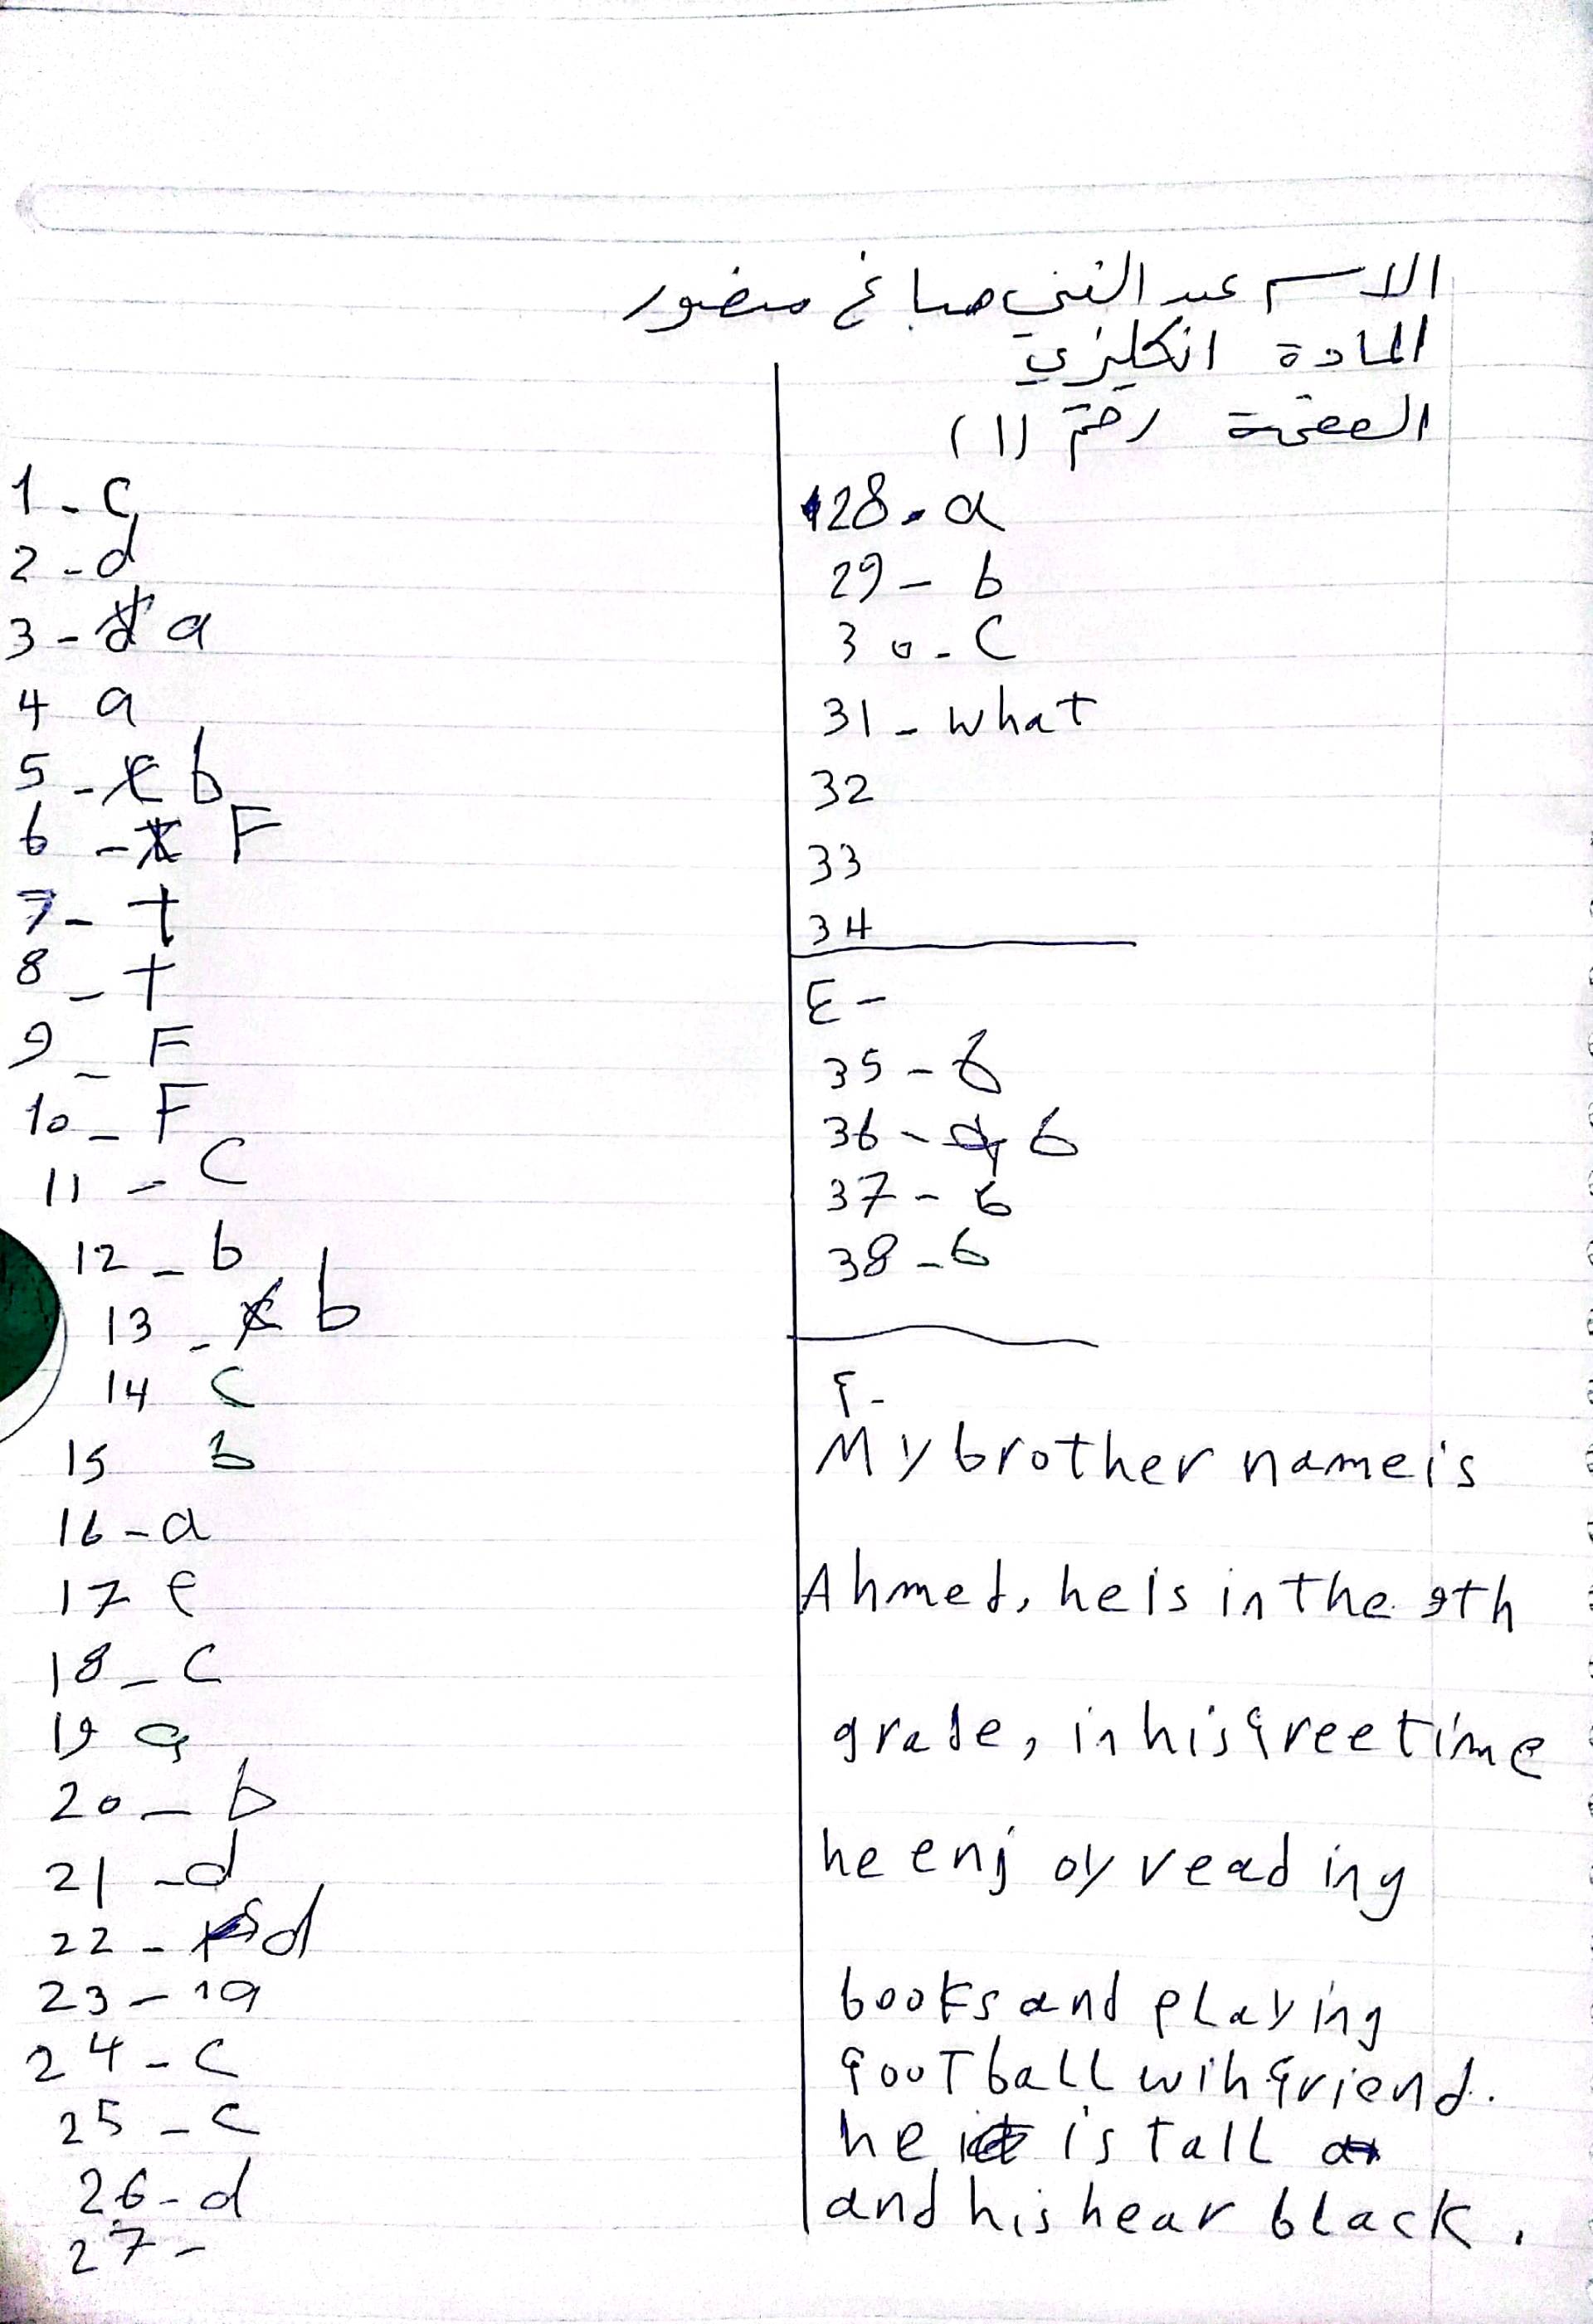 الاسم عبد الغني صباغ منصور
المادة انكليزي
الصفحة رقم (1)
1 - c
2 - d
3 - a
4 a
5 - b
6 - F
7 - t
8 - t
9 - F
10 - F
11 - C
12 - b
13 - b
14 C
15 b
16 - a
17 e
18 - C
19 a
20 - b
21 - d
22 - d
23 - a
24 - C
25 - C
26 - d
27 -
28 - a
29 - b
30 - C
31 - what
32
33
34
E -
35 - b
36 - b
37 - b
38 - b
F -
My brother name is
Ahmed, he is in the 9th
grade, in his free time
he enjoy reading
books and playing
football wih friend.
he is tall
and his hear black.